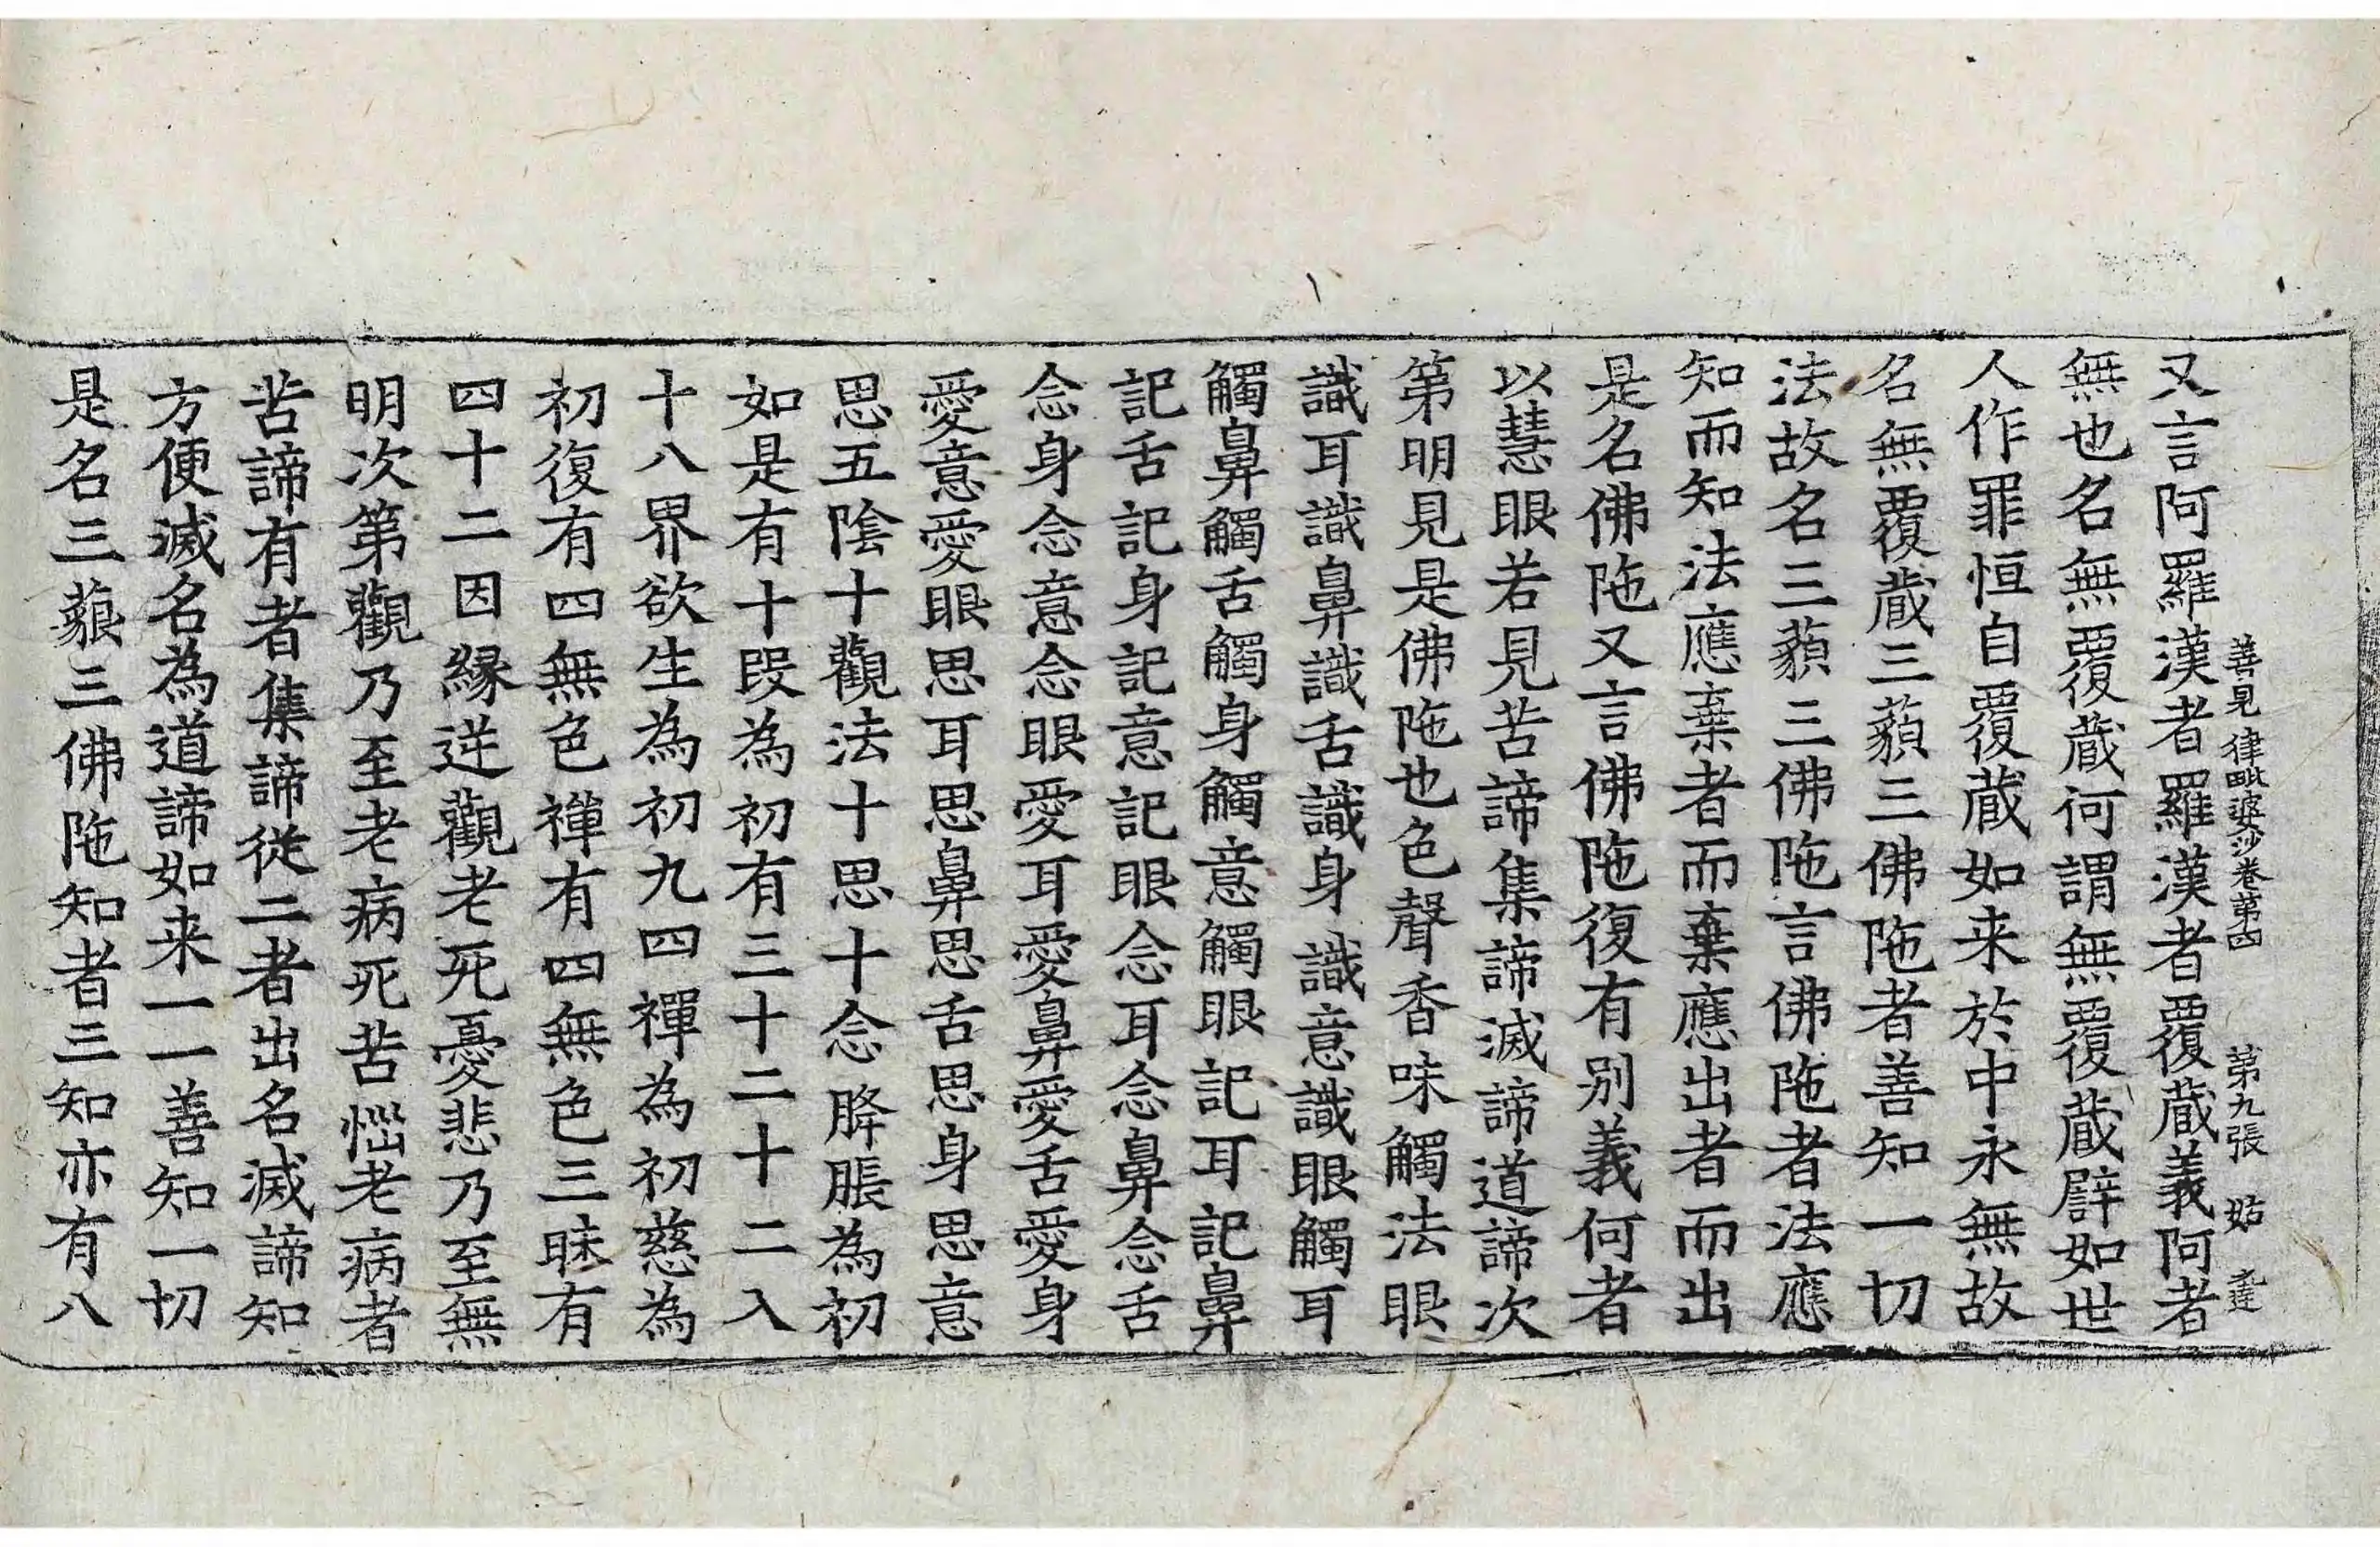 善見律毗婆沙卷第四 第九張 姑
又言阿羅漢者羅漢者覆蔵義阿者
無也名無覆蔵何謂無覆蔵辟如世
人作罪恒自覆蔵如来於中永無故
名無覆蔵三藐三佛陁者善知一切
法故名三藐三佛陁言佛陁者法應
知而知法應棄者而棄應出者而出
是名佛陁又言佛陁復有别義何者
以慧眼若見苦諦集諦滅諦道諦次
第明見是佛陁也色聲香味觸法眼
識耳識鼻識舌識身識意識眼觸耳
觸鼻觸舌觸身觸意觸眼記耳記鼻
記舌記身記意記眼念耳念鼻念舌
念身念意念眼愛耳愛鼻愛舌愛身
愛意愛眼思耳思鼻思舌思身思意
思五陰十觀法十思十念胮脹為初
如是有十段為初有三十二十二入
十八界欲生為初九四禪為初慈為
初復有四無色禪有四無色三昧有
四十二因縁逆觀老死憂悲乃至無
明次第觀乃至老病死苦惱老病者
苦諦有者集諦從二者出名滅諦知
方便滅名為道諦如来一一善知一切
是名三藐三佛陁知者三知亦有八